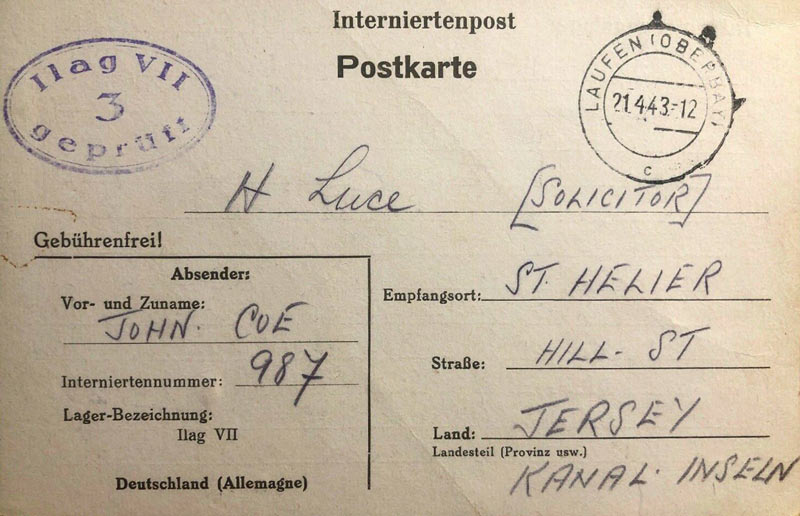 Interniertenpost
Postkarte
Ilag VII
3
geprüft
LAUFEN (OBERBAY)
21.4.43-12
c
H Luce [SOLICITOR]
Gebührenfrei!
Absender:
Vor- und Zuname:
JOHN. COE
Interniertennummer: 987
Lager-Bezeichnung:
Ilag VII
Deutschland (Allemagne)
Empfangsort: ST. HELIER
Straße: HILL. ST
Land: JERSEY
Landesteil (Provinz usw.)
KANAL. INSELN